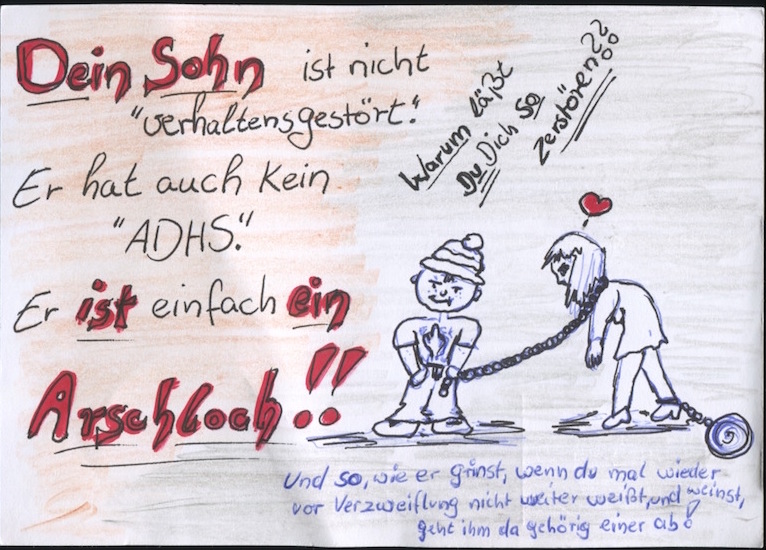 Dein Sohn ist nicht
"verhaltensgestört."
Er hat auch kein
"ADHS."
Er ist einfach ein
Arschloch!!
Warum läßt
Du Dich so
zerstören??
Und so, wie er grinst, wenn du mal wieder
vor Verzweiflung nicht weiter weißt, und weinst,
geht ihm da gehörig einer ab!